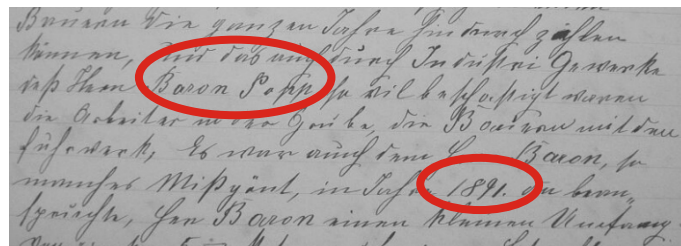 Bauern die ganzen Jahre hindurch zählen
können, und das auch durch Industri Gewerke
deß Herr Baron Popp so vil beschäftigt waren
die Arbeiter in der Grube, die Bauern mit den
Fuhrwerk, Es war auch dem Baron, so
manches Mißgönt, in Jahre 1891. da bean„
spruchte, Herr Baron einen kleinen Umfang